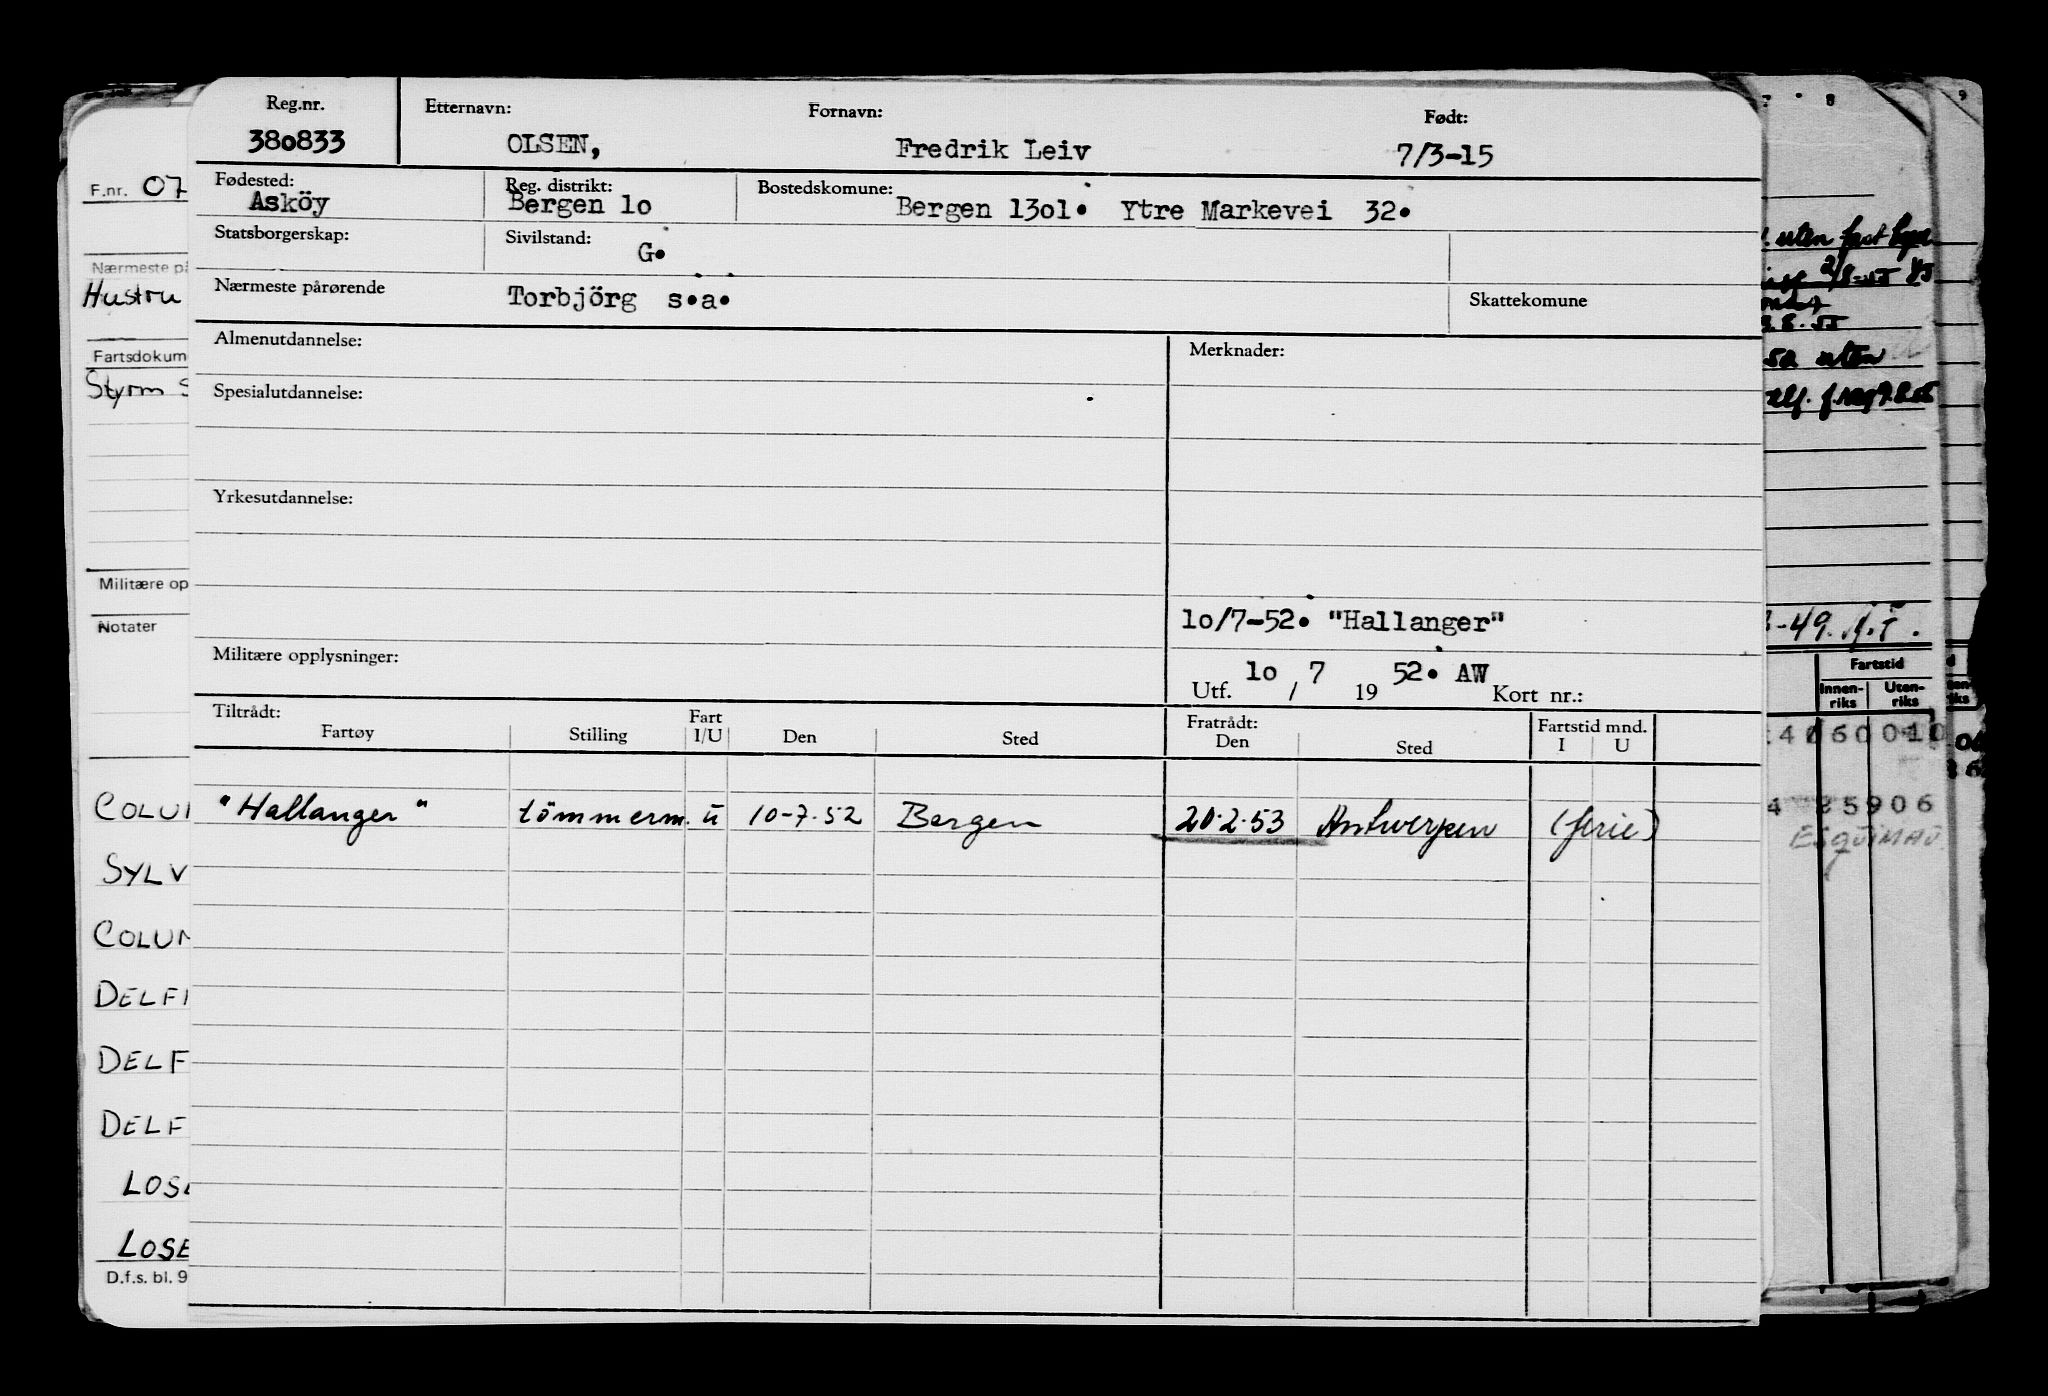 Reg.nr. Etternavn: Fornavn: Født:
380833 OLSEN, Fredrik Leiv 7/3-15
Fødested: Reg. distrikt: Bostedskomune:
Asköy Bergen lo Bergen 13ol. Ytre Markevei 32.
Statsborgerskap: Sivilstand: G.
Nærmeste pårørende Torbjörg s.a. Skattekomune
Almenutdannelse: Merknader:
Spesialutdannelse:
Yrkesutdannelse:
lo/7-52. "Hallanger"
Militære opplysninger:
Utf. lo / 7 19 52. AW Kort nr.:
Tiltrådt: Fratrådt: Fartstid mnd.
Fartøy Stilling Fart I/U Den Sted Den Sted I U
"Hallanger" tömmerm. u 10-7-52 Bergen 20.2.53 Antwerpen (ferie)
F.nr. 07
Nærmeste på
Hustru
Fartsdokum
Styrm s
Militære op
Notater
COLUM
SYLV
COLUM
DELFI
DELF
DELF
LOSE
LOSE
D.f.s. bl. 9
8
9
uten fast
8.55
uten
-49.
Fartstid
Innen-riks Uten-riks
25906
ESQUIMAU